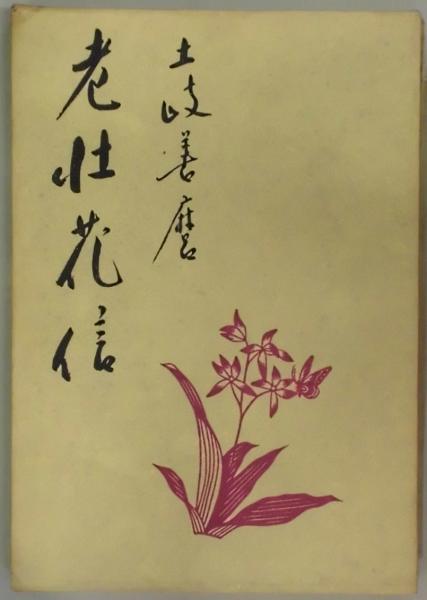 土岐善麿
老壮花信